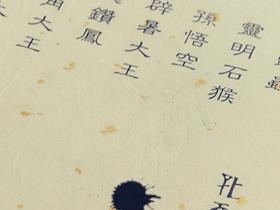 靈明石猴
孫悟空
辟暑大王
鑽鳳
大王